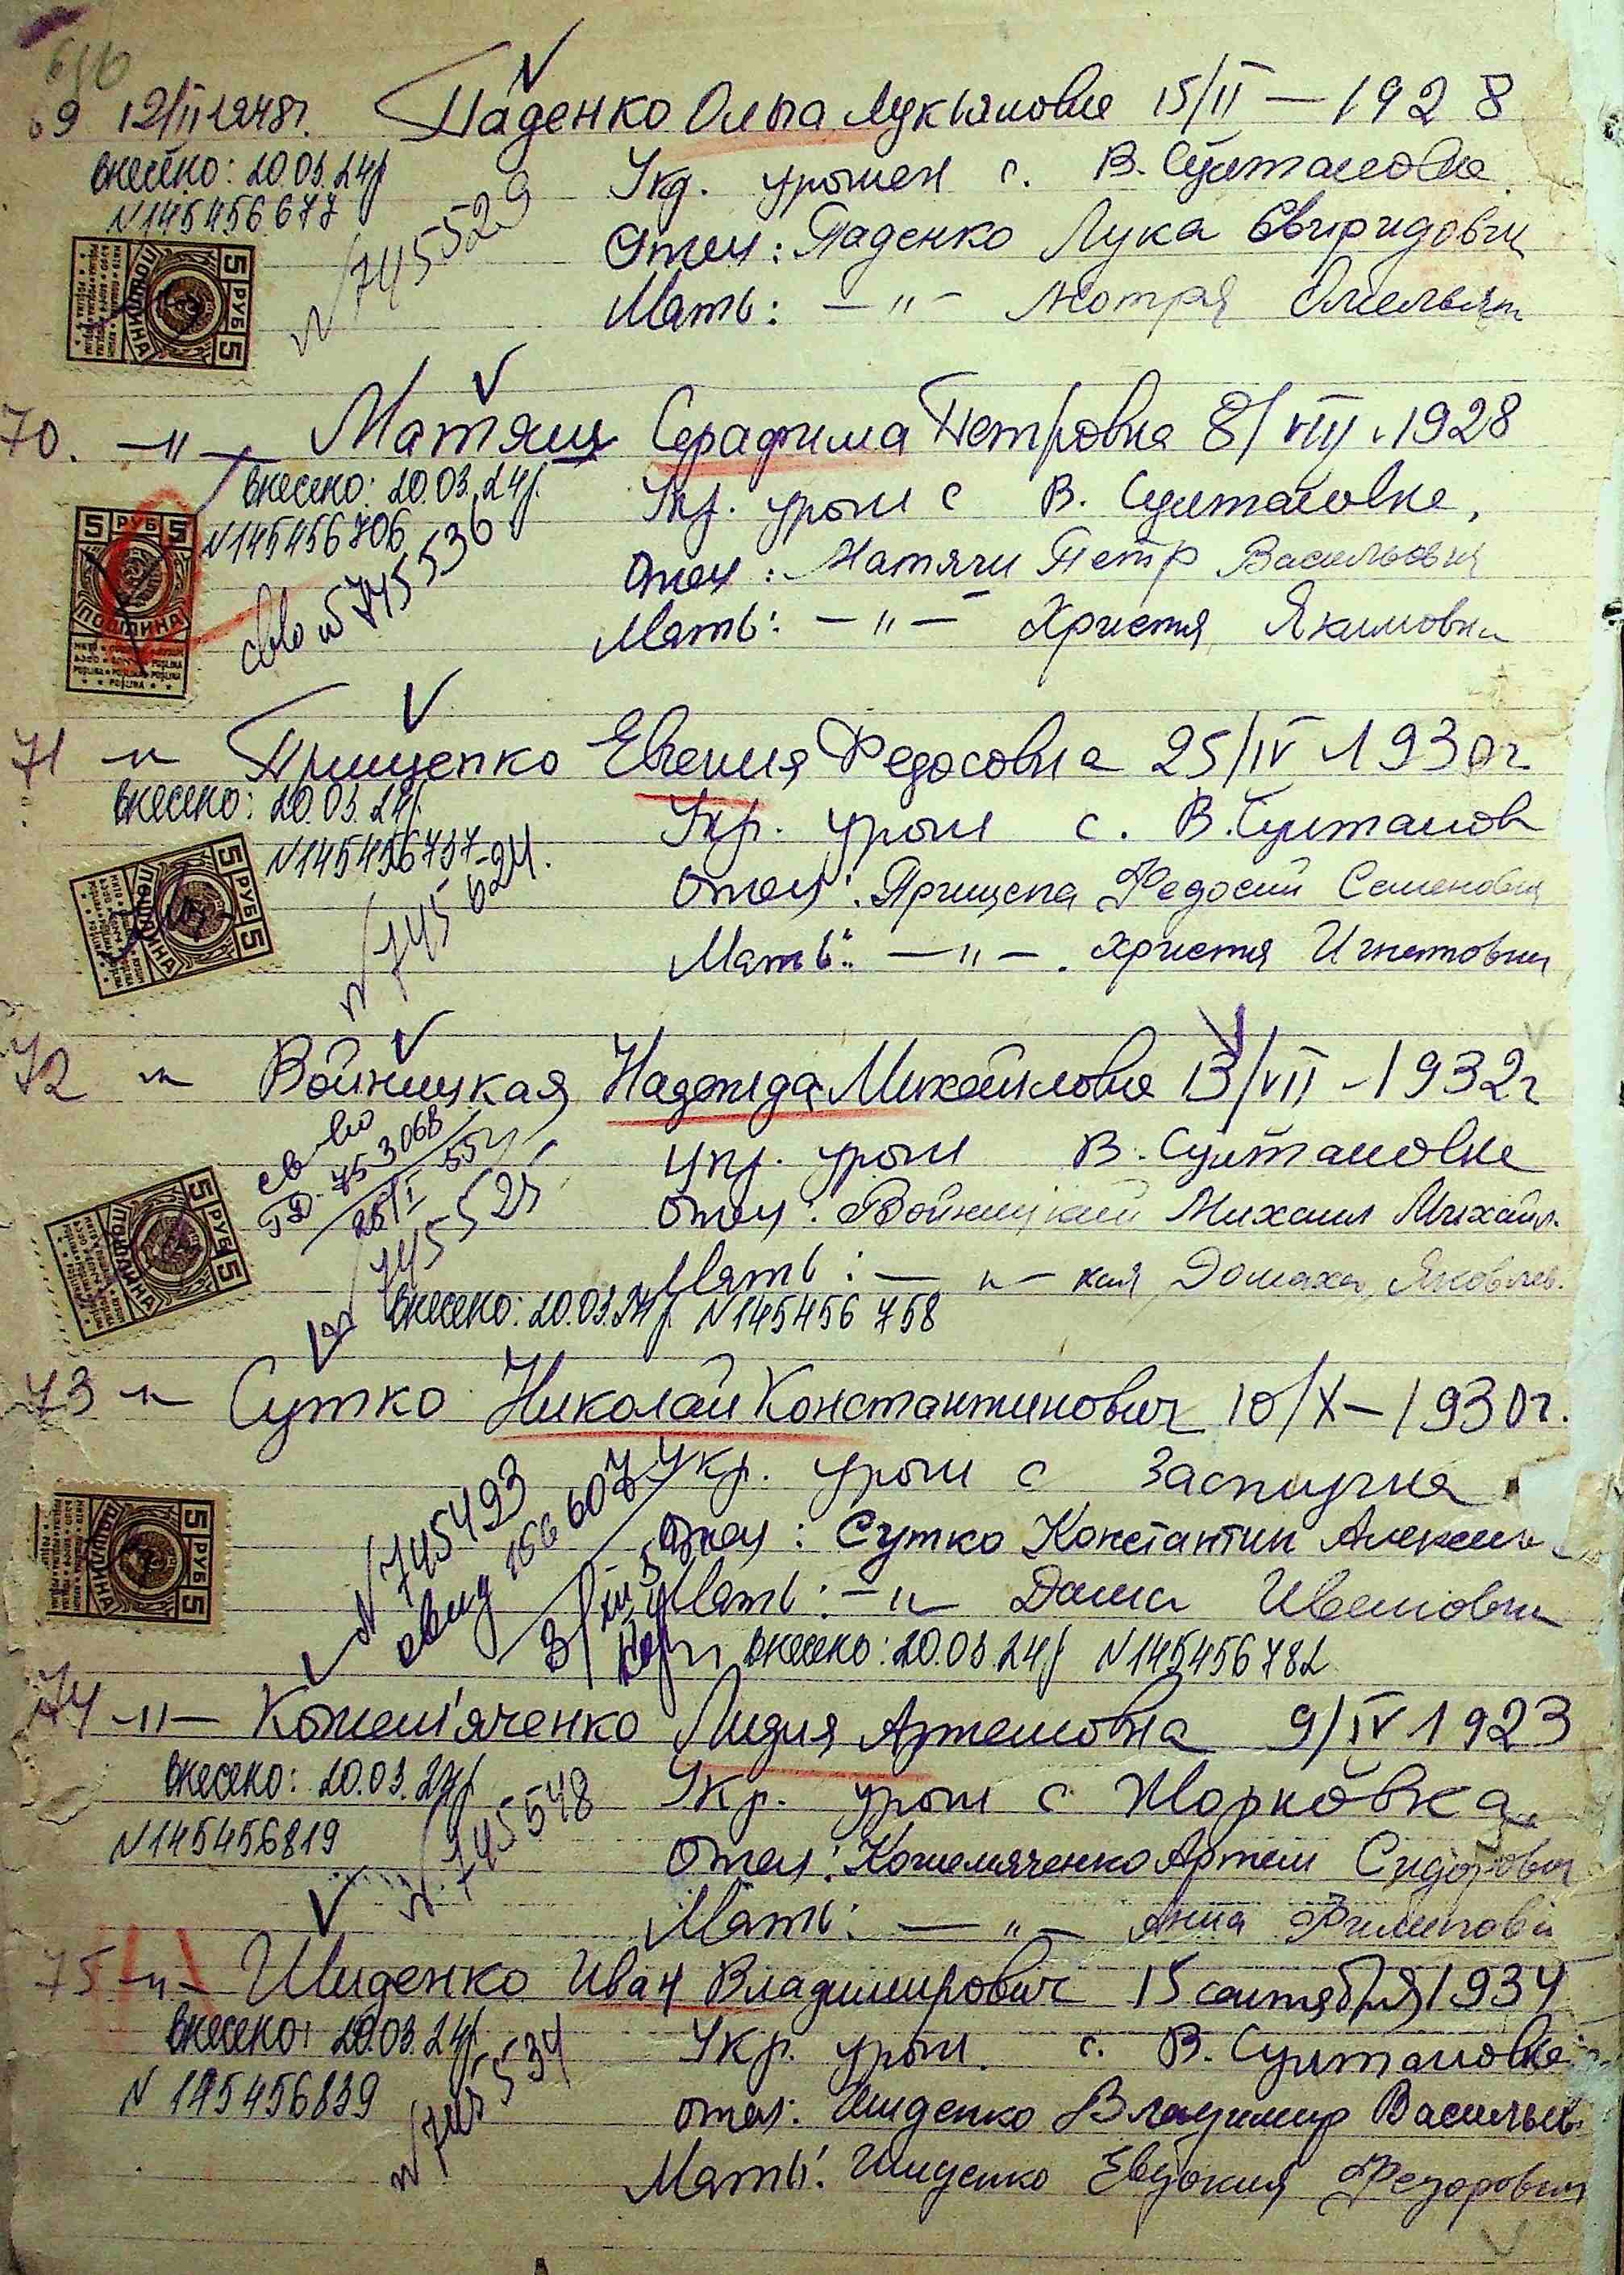 69 12/II 1948г. Паденко Ольга Лукьяновна 15/II — 1928
внесено: 20.03.24р
N145456677
Укр. урожен с. В. Султановка
N 745529
Отец: Паденко Лука Свиридович
Мать: — " — Мотря Омельян
5 РУБ 5
ПОШЛИНА
70. — " — Матяш Серафима Петровна 8/VIII 1928
внесено: 20.03.24р.
N145456706
Укр. урож с В. Султановка,
св-во N 745536
Отец: Матяш Петр Васильевич
Мать: — " — Христя Якимовна
5 РУБ 5
ПОШЛИНА
71 — " Прищепко Евгения Федосовна 25/IV 1930г
внесено: 20.03.24р.
N145456737
Укр. урож с. В. Султанов
N 745624.
Отец: Прищепа Федосий Семенович
Мать: — " — Христя Игнатовна
5 РУБ 5
ПОШЛИНА
72 — " Войницкая Надежда Михайловна 13/VII — 1932г
св-во
753068
Укр. урож В. Султановка
26/I 55г
Отец: Войницкий Михаил Михайл.
Мать: — " — кая Домаха Яковлев.
внесено: 20.03.24р. N145456758
5 РУБ 5
ПОШЛИНА
73 — " Сутко Николай Константинович 10/X — 1930г.
Укр. урож с
N 745493
Отец: Сутко Константин Алексеев
Мать: — " — Даша Ивановна
внесено: 20.03.24р N145456782
5 РУБ 5
ПОШЛИНА
74 — " — Кожем'яченко Лидия Артемовна 9/IV 1923
внесено: 20.03.24р
Укр. урож с Жорновка
N145456819
N 745548
Отец: Кожемяченко Артем Сидорович
Мать: — " — Анна Филипов
75 — " — Шиденко Иван Владимирович 15 сентября 1934
внесено: 20.03.24р
Укр. урож. с. В. Султановка
N 145456839
N 745534
Отец: Шиденко Владимир Васильев
Мать: Шиденко Евдокия Федоровна